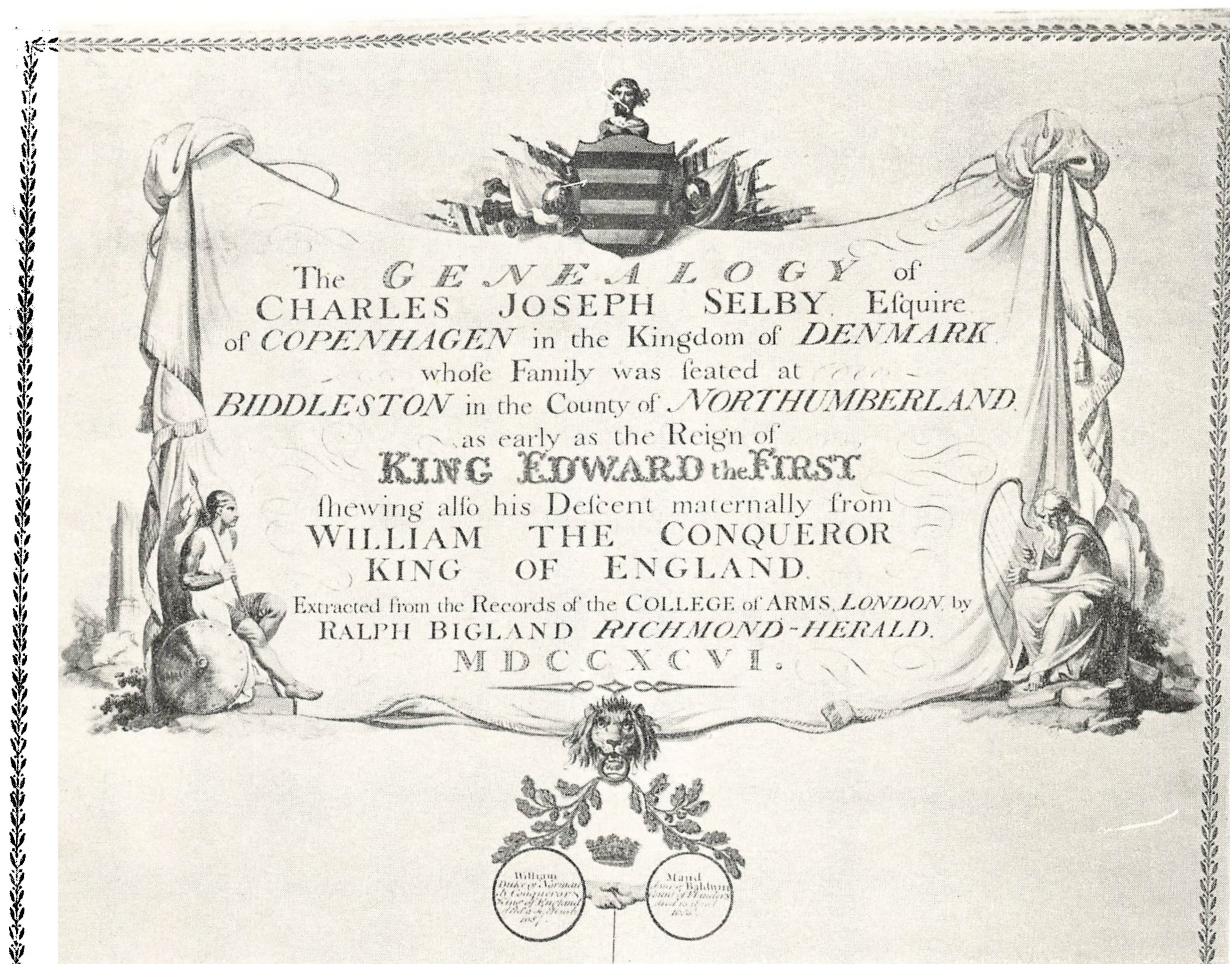 The GENEALOGY of
CHARLES JOSEPH SELBY, Eſquire
of COPENHAGEN in the Kingdom of DENMARK,
whoſe Family was ſeated at
BIDDLESTON in the County of NORTHUMBERLAND,
as early as the Reign of
KING EDWARD the FIRST
ſhewing alſo his Deſcent maternally from
WILLIAM THE CONQUEROR
KING OF ENGLAND.
Extracted from the Records of the COLLEGE of ARMS, LONDON, by
RALPH BIGLAND RICHMOND-HERALD.
MDCCXCVI.
William
Duke of Norman
Conqueror
King of England
1087
Maud
of Baldwin
of Flanders